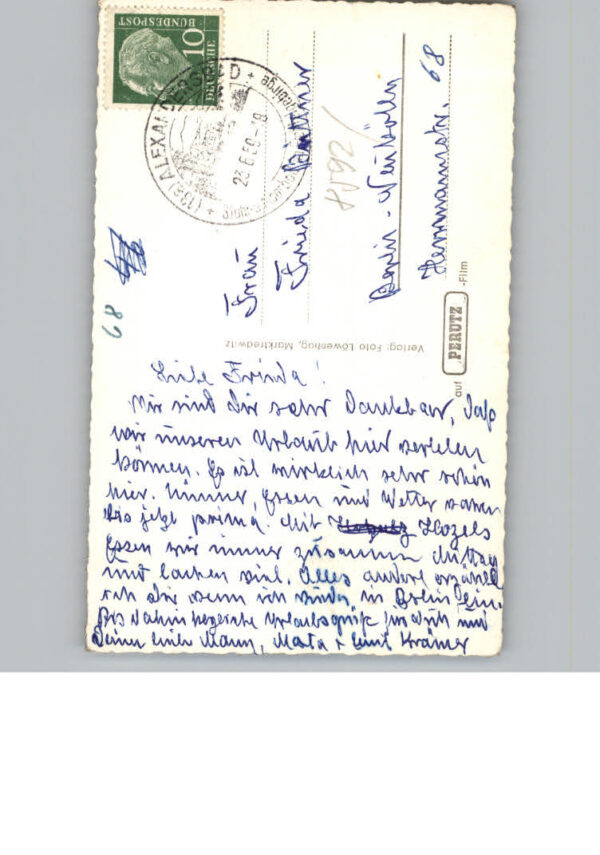 10
DEUTSCHE
BUNDESPOST
(13a) ALEXANDERSBAD
23.6.59-18
Frau
Frieda Büttner
Berlin-Neukölln
Herrmannstr. 68
68
Verlag: Foto Löwenhag, Marktredwitz
auf PERUTZ -Film
Liebe Frieda!
Wir sind Dir sehr dankbar, daß
wir unseren Urlaub hier verleben
können. Es ist wirklich sehr schön
hier. Zimmer, Essen und Wetter waren
bis jetzt prima. Mit Hozels
Essen wir immer zusammen Mittag
und lachen viel. Alles andere erzähle
ich Dir wenn ich wieder in Berlin bin.
Bis dahin herzliche Urlaubsgrüße für Dich und
Deinen lieben Mann, Krämer